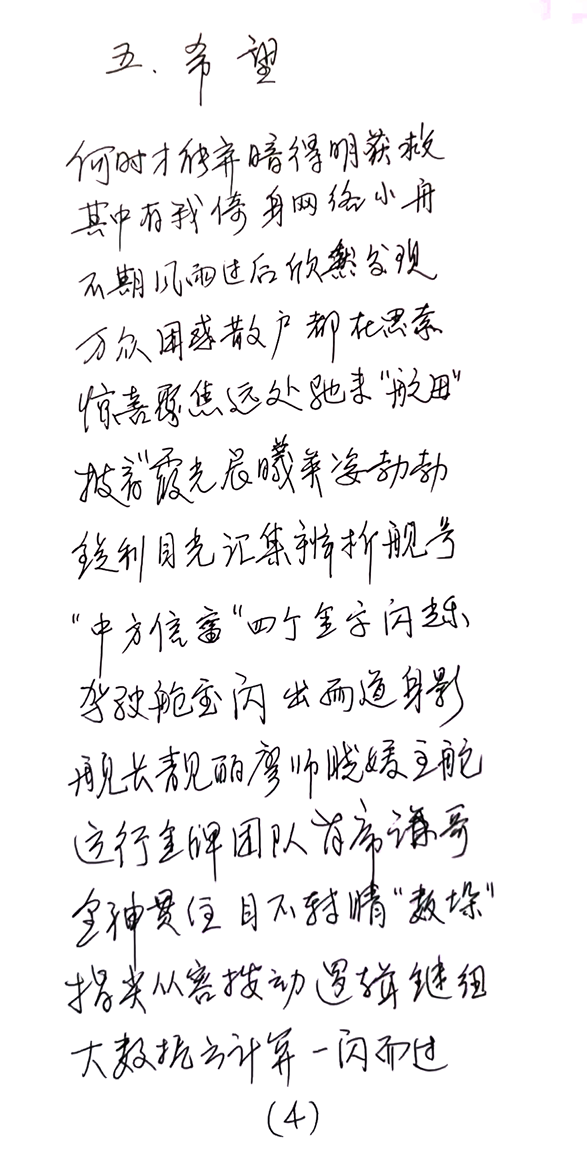 五.希望
何时才能弃暗得明获救
其中有我倚身网络小舟
不期风雨过后欣然发现
万众困惑散户都在思索
惊喜聚焦远处驰来"航母"
披着霞光晨曦英姿勃勃
锐利目光汇集辨析舰号
"中方信富"四个金字闪烁
驾驶舱室闪出两道身影
舰长靓丽廖帅晓媛主舵
运行金牌团队首席谦哥
全神贯注目不转睛"数垛"
指尖从容拨动逻辑键组
大数据云计算一闪而过
(4)